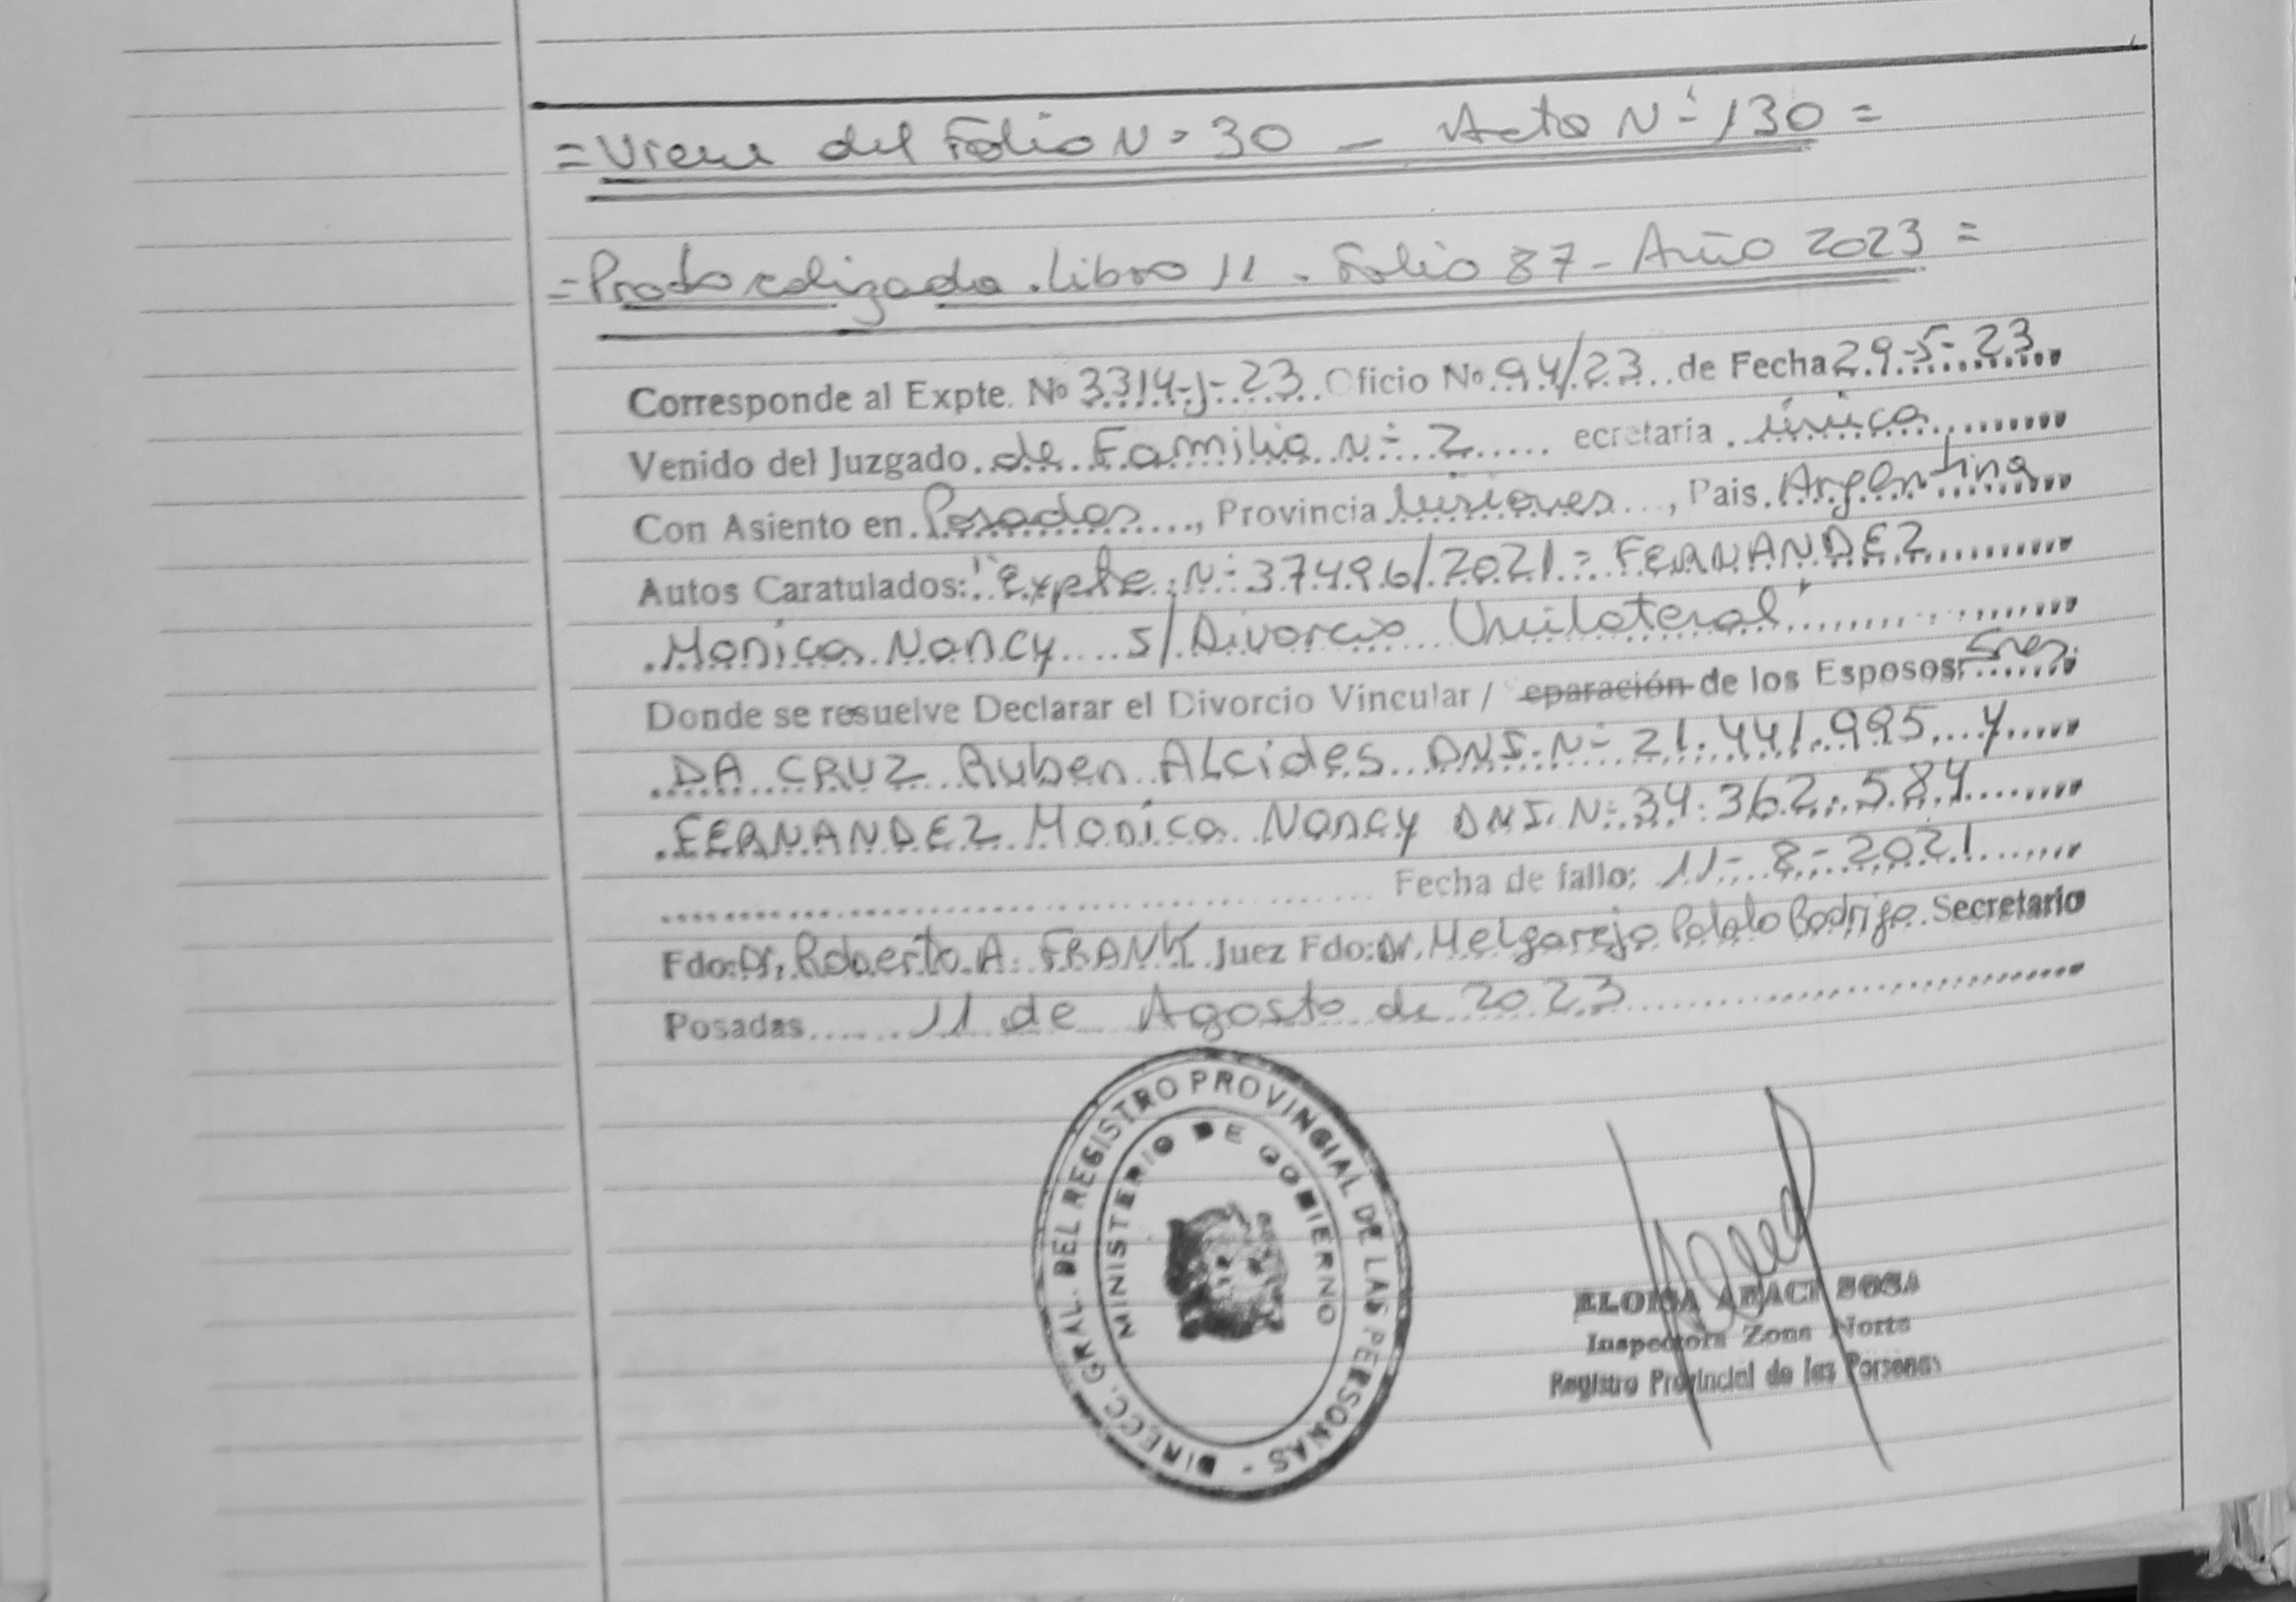 = Viene del Folio Nº 30 - Acta Nº 130 =
= Protocolizada. Libro 11 - Folio 87 - Año 2023 =
Corresponde al Expte. Nº 3314-J-23 Oficio Nº 94/23 de Fecha 29-5-23
Venido del Juzgado de Familia Nº 2 ecretaria única
Con Asiento en Posadas, Provincia Misiones, Pais Argentina
Autos Caratulados: "Expte. Nº 37496/2021 = FERNANDEZ
Monica Nancy s/ Divorcio Unilateral"
Donde se resuelve Declarar el Divorcio Vincular / eparación de los Esposos: Sres.
DA CRUZ Ruben Alcides DNI. Nº 21.441.995 y
FERNANDEZ Monica Nancy DNI. Nº 34.362.584
Fecha de fallo: 11-8-2021
Fdo: Dr. Roberto A. FRANK Juez Fdo: Dr. Melgarejo Pablo Rodrigo Secretario
Posadas 11 de Agosto de 2023
DIRECC. GRAL. DEL REGISTRO PROVINCIAL DE LAS PERSONAS -
MINISTERIO DE GOBIERNO
ELOISA ARACI SOSA
Inspectora Zona Norte
Registro Provincial de las Personas